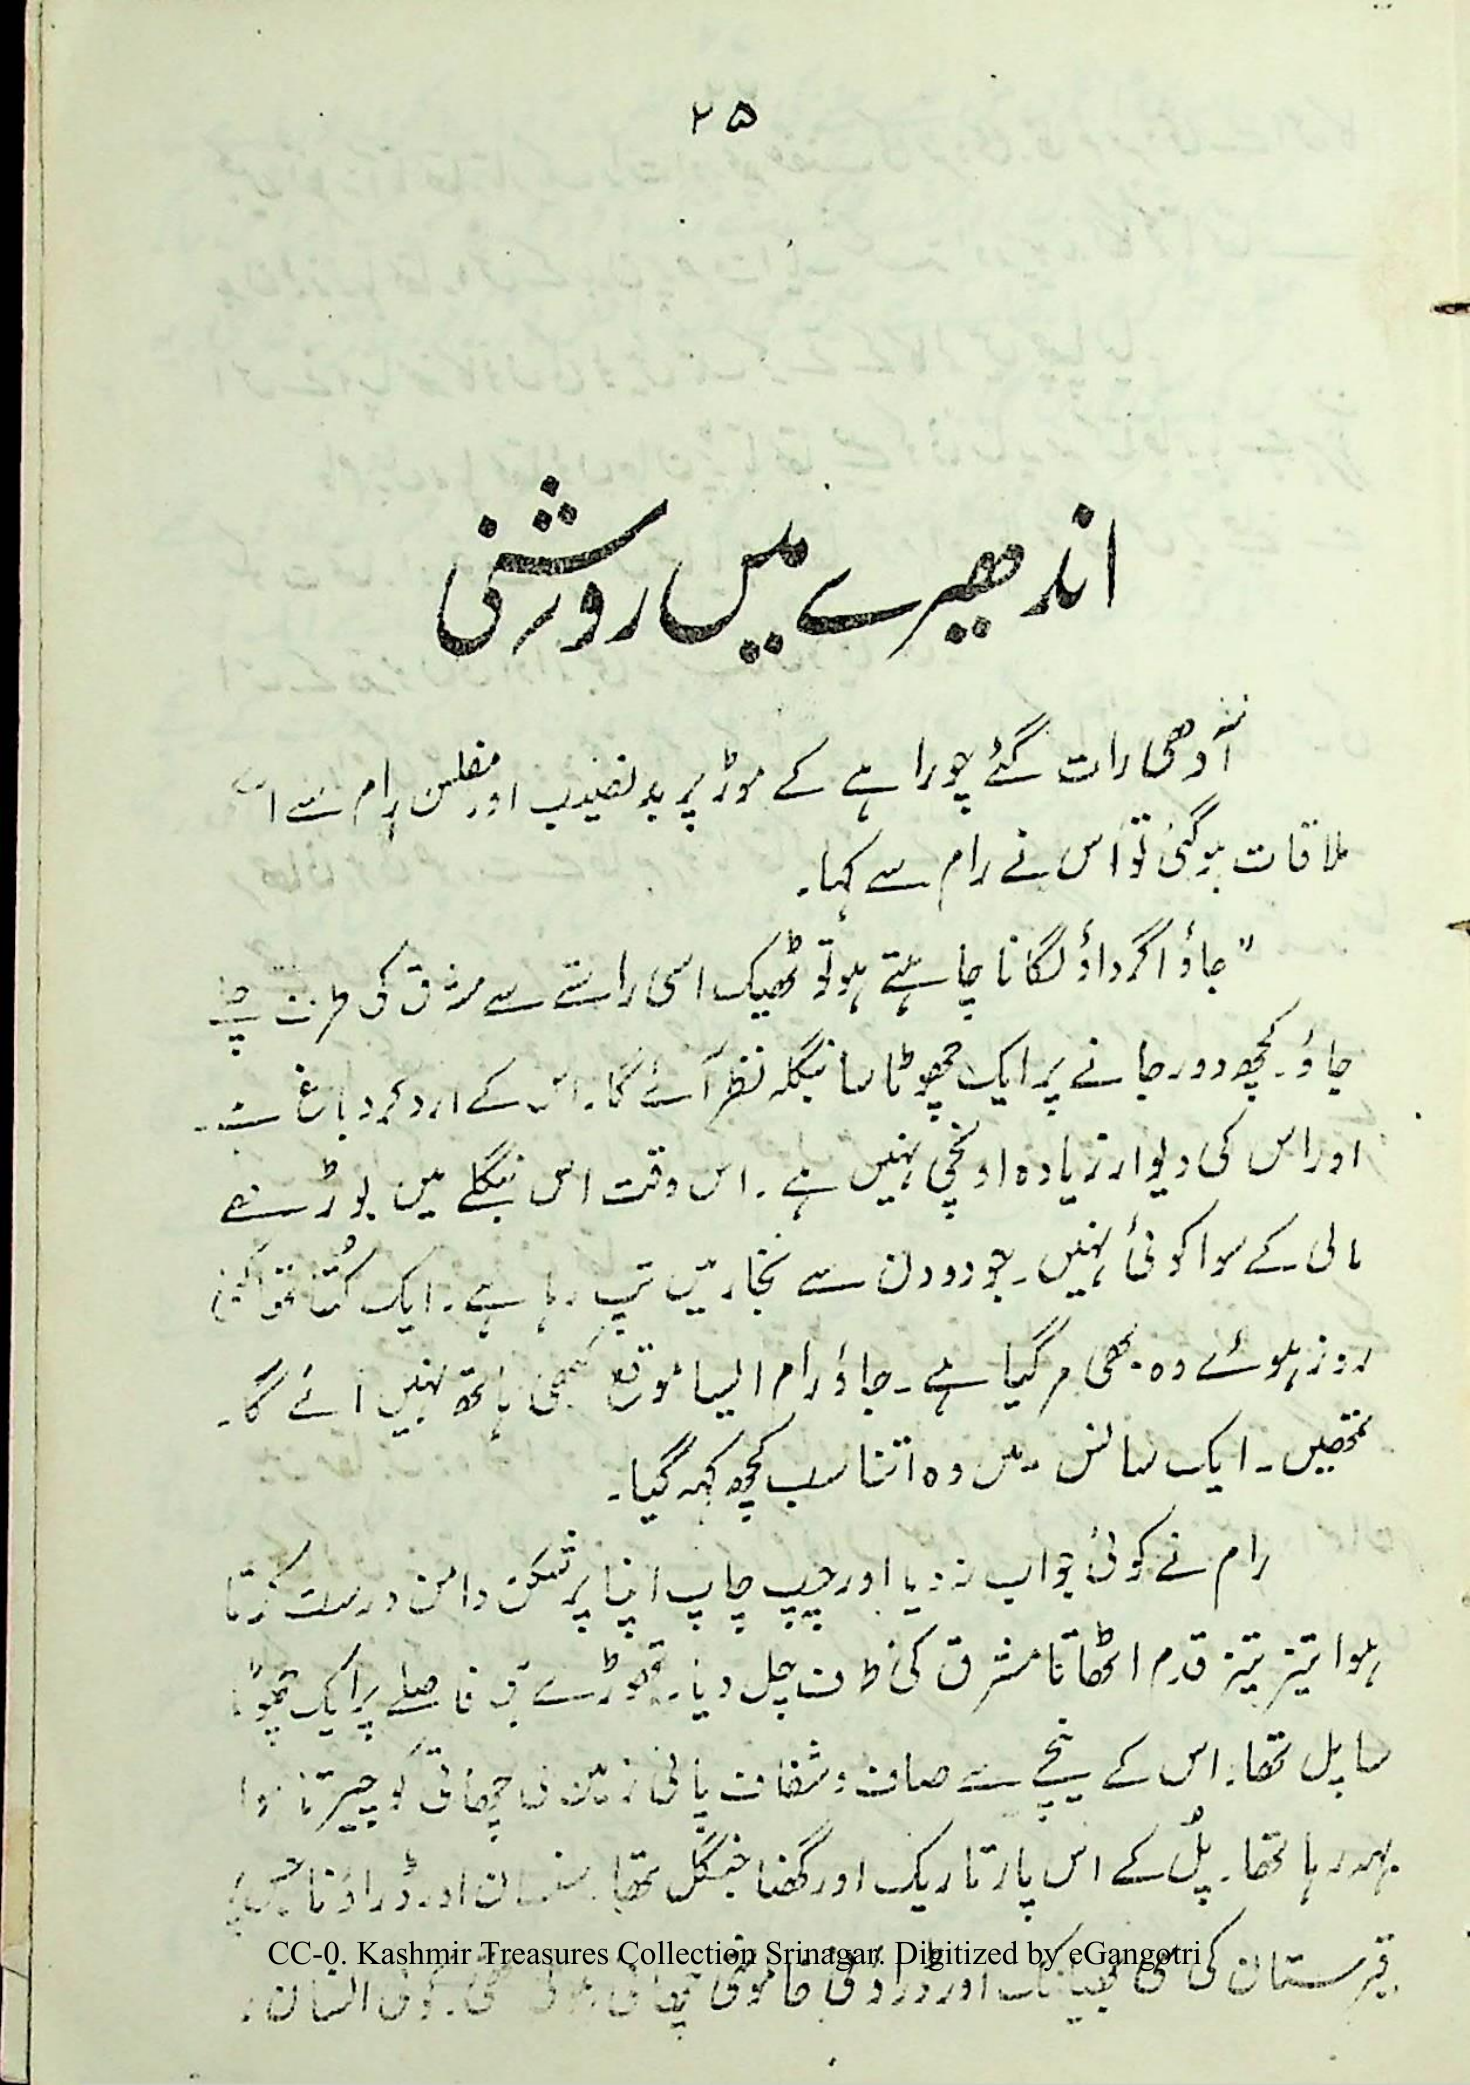 ۲۵
اندھیرے میں روشنی
آدھی رات گئے چوراہے کے موڑ پر بدنصیب اور مفلس رام سے
ملاقات ہوگئی تو اُس نے رام سے کہا۔
"جاؤ اگر داؤ لگانا چاہتے ہو تو ٹھیک اسی راستے سے مشرق کی طرف چلے
جاؤ۔ کچھ دور جانے پر ایک چھوٹا سا بنگلہ نظر آئے گا۔ اس کے ارد گرد باغ ہے۔
اور اس کی دیوار زیادہ اونچی نہیں ہے۔ اس وقت اس بنگلے میں بوڑھے
مالی کے سوا کوئی نہیں۔ جو دو دن سے بخار میں تپ رہا ہے۔ ایک کُتا تھا
روز ہوئے وہ بھی مر گیا ہے۔ جاؤ رام ایسا موقع کبھی ہاتھ نہیں آئے گا۔
تمھیں۔ ایک سانس میں وہ اتنا سب کچھ کہہ گیا۔
رام نے کوئی جواب نہ دیا اور چپ چاپ اپنا پرشکن دامن درست کرتا
ہوا تیز تیز قدم اٹھاتا مشرق کی طرف چل دیا۔ تھوڑے ہی فاصلے پر ایک چھوٹا
سا پل تھا۔ اس کے نیچے سے صاف و شفاف پانی زمین کی چھاتی کو چیرتا ہوا
بہہ رہا تھا۔ پُل کے اس پار تاریک اور گھنا جنگل تھا۔ سنسان اور ڈراؤنا
قبرستان کی سی بھیانک اور ڈراؤنی خاموشی چھائی ہوئی تھی۔ کوئی انسان
CC-0. Kashmir Treasures Collection Srinagar. Digitized by eGangotri